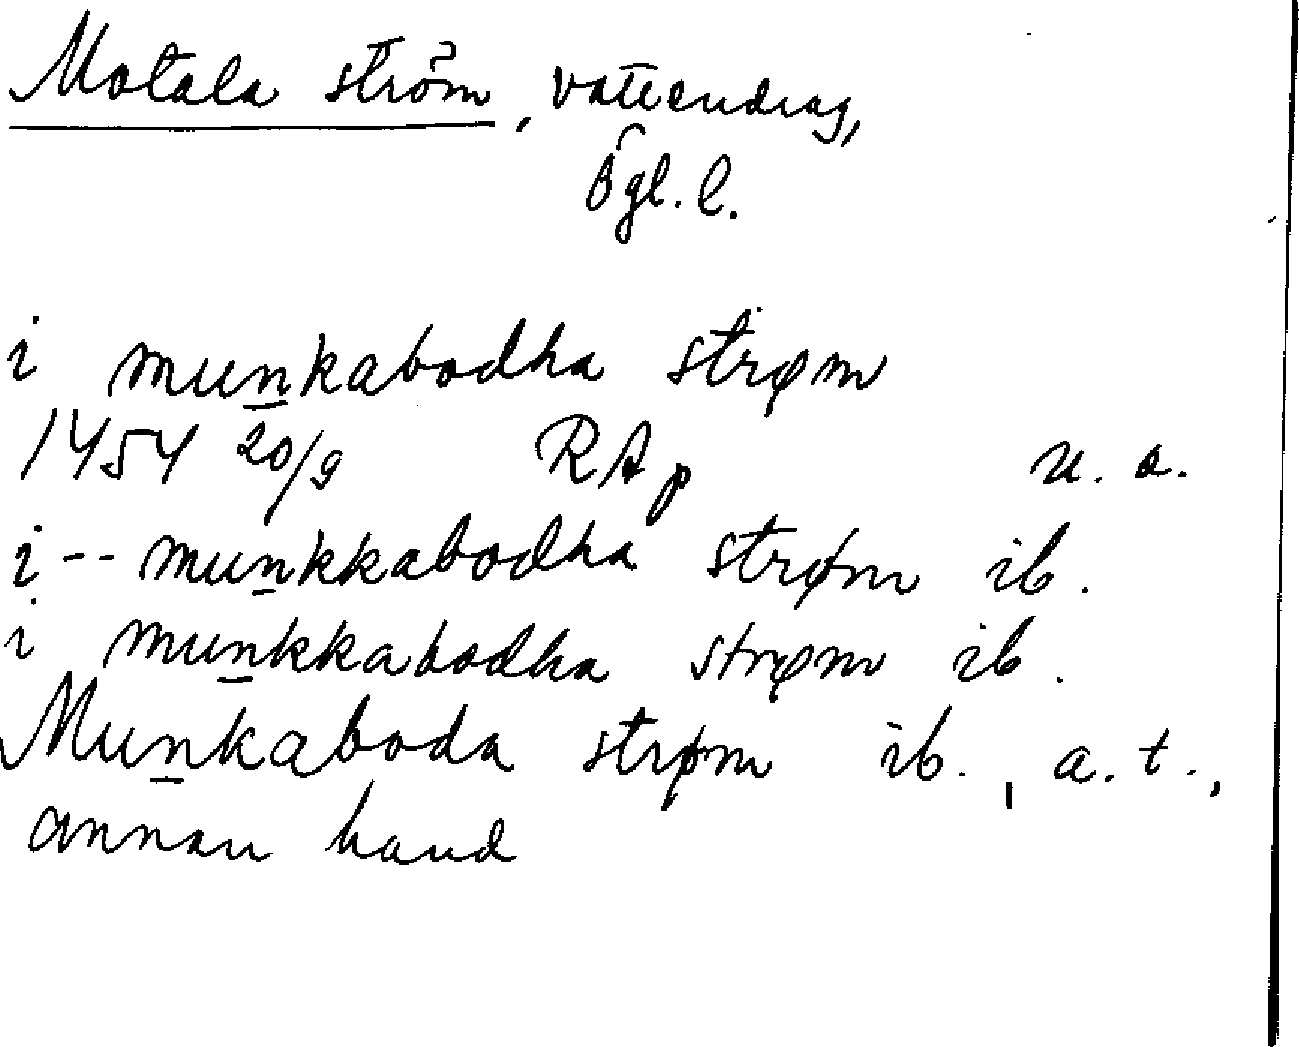 Motala ström, vattendrag,
Ögl. l.
i munkabodha strøm
1454 20/9 RAp u. o.
i -- munkkabodha strøm ib.
i munkkabodha strøm ib.
Munkaboda strøm ib., a. t.,
annan hand